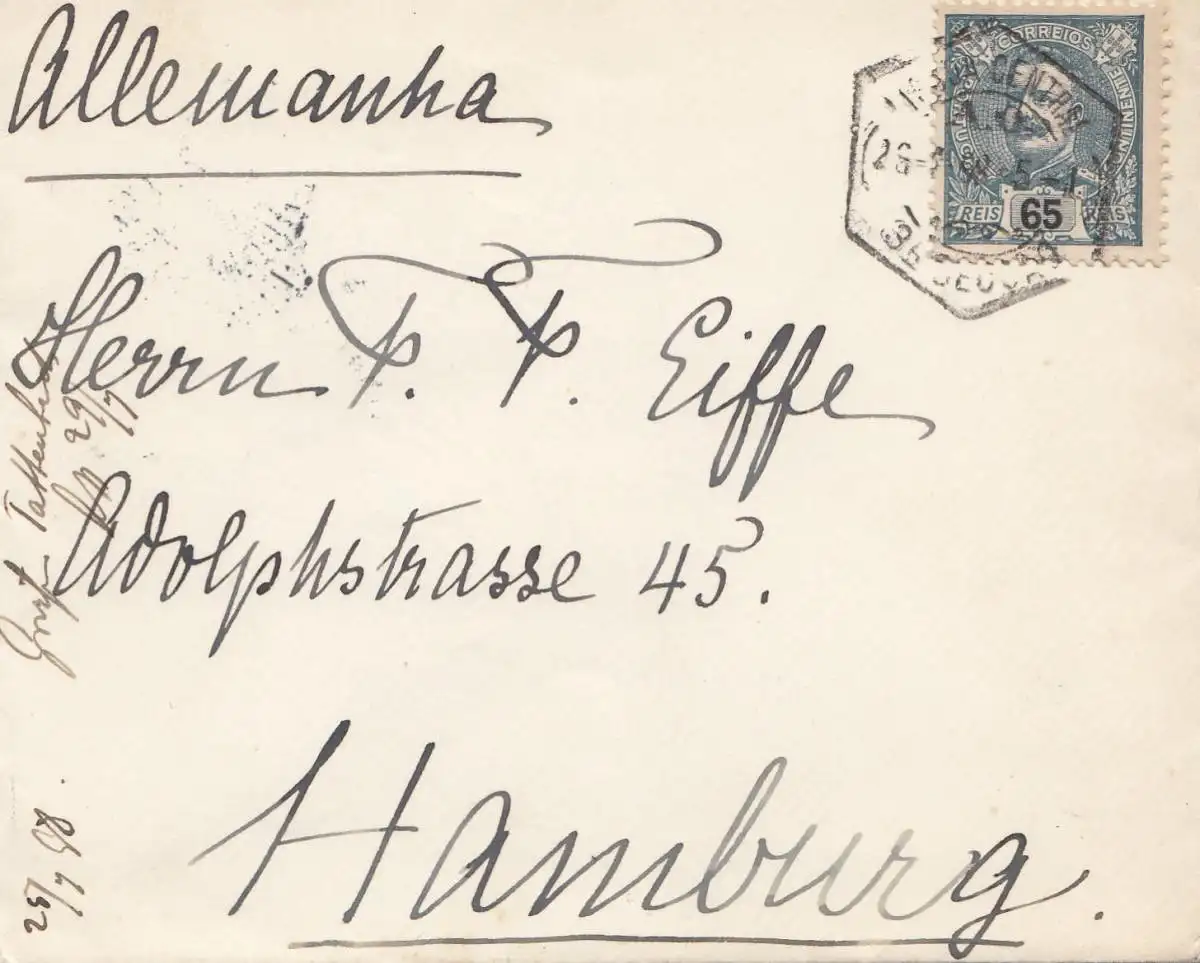 Allemanha
CORREIOS
CENTRAL
26
REIS 65 REIS
Herrn F. F. Eiffe
Adolphstrasse 45.
Hamburg.
Graf Tattenbach
29/7
25/7 98.